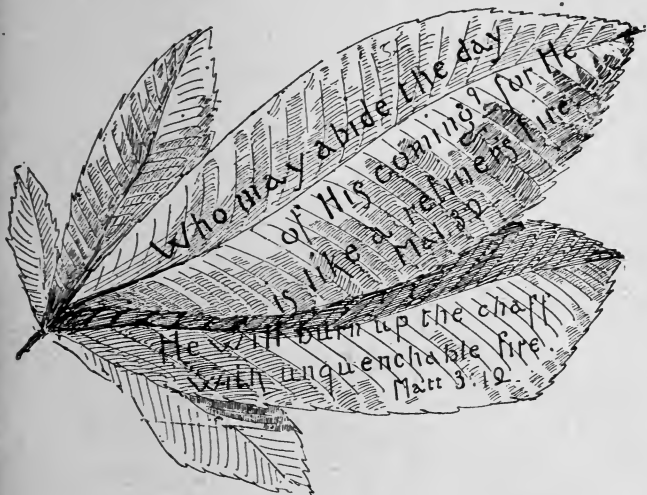 Who may abide the day
of His coming? for He
is like a refiners fire.
Mal 3:2
He will burn up the chaff
with unquenchable fire.
Matt 3:12